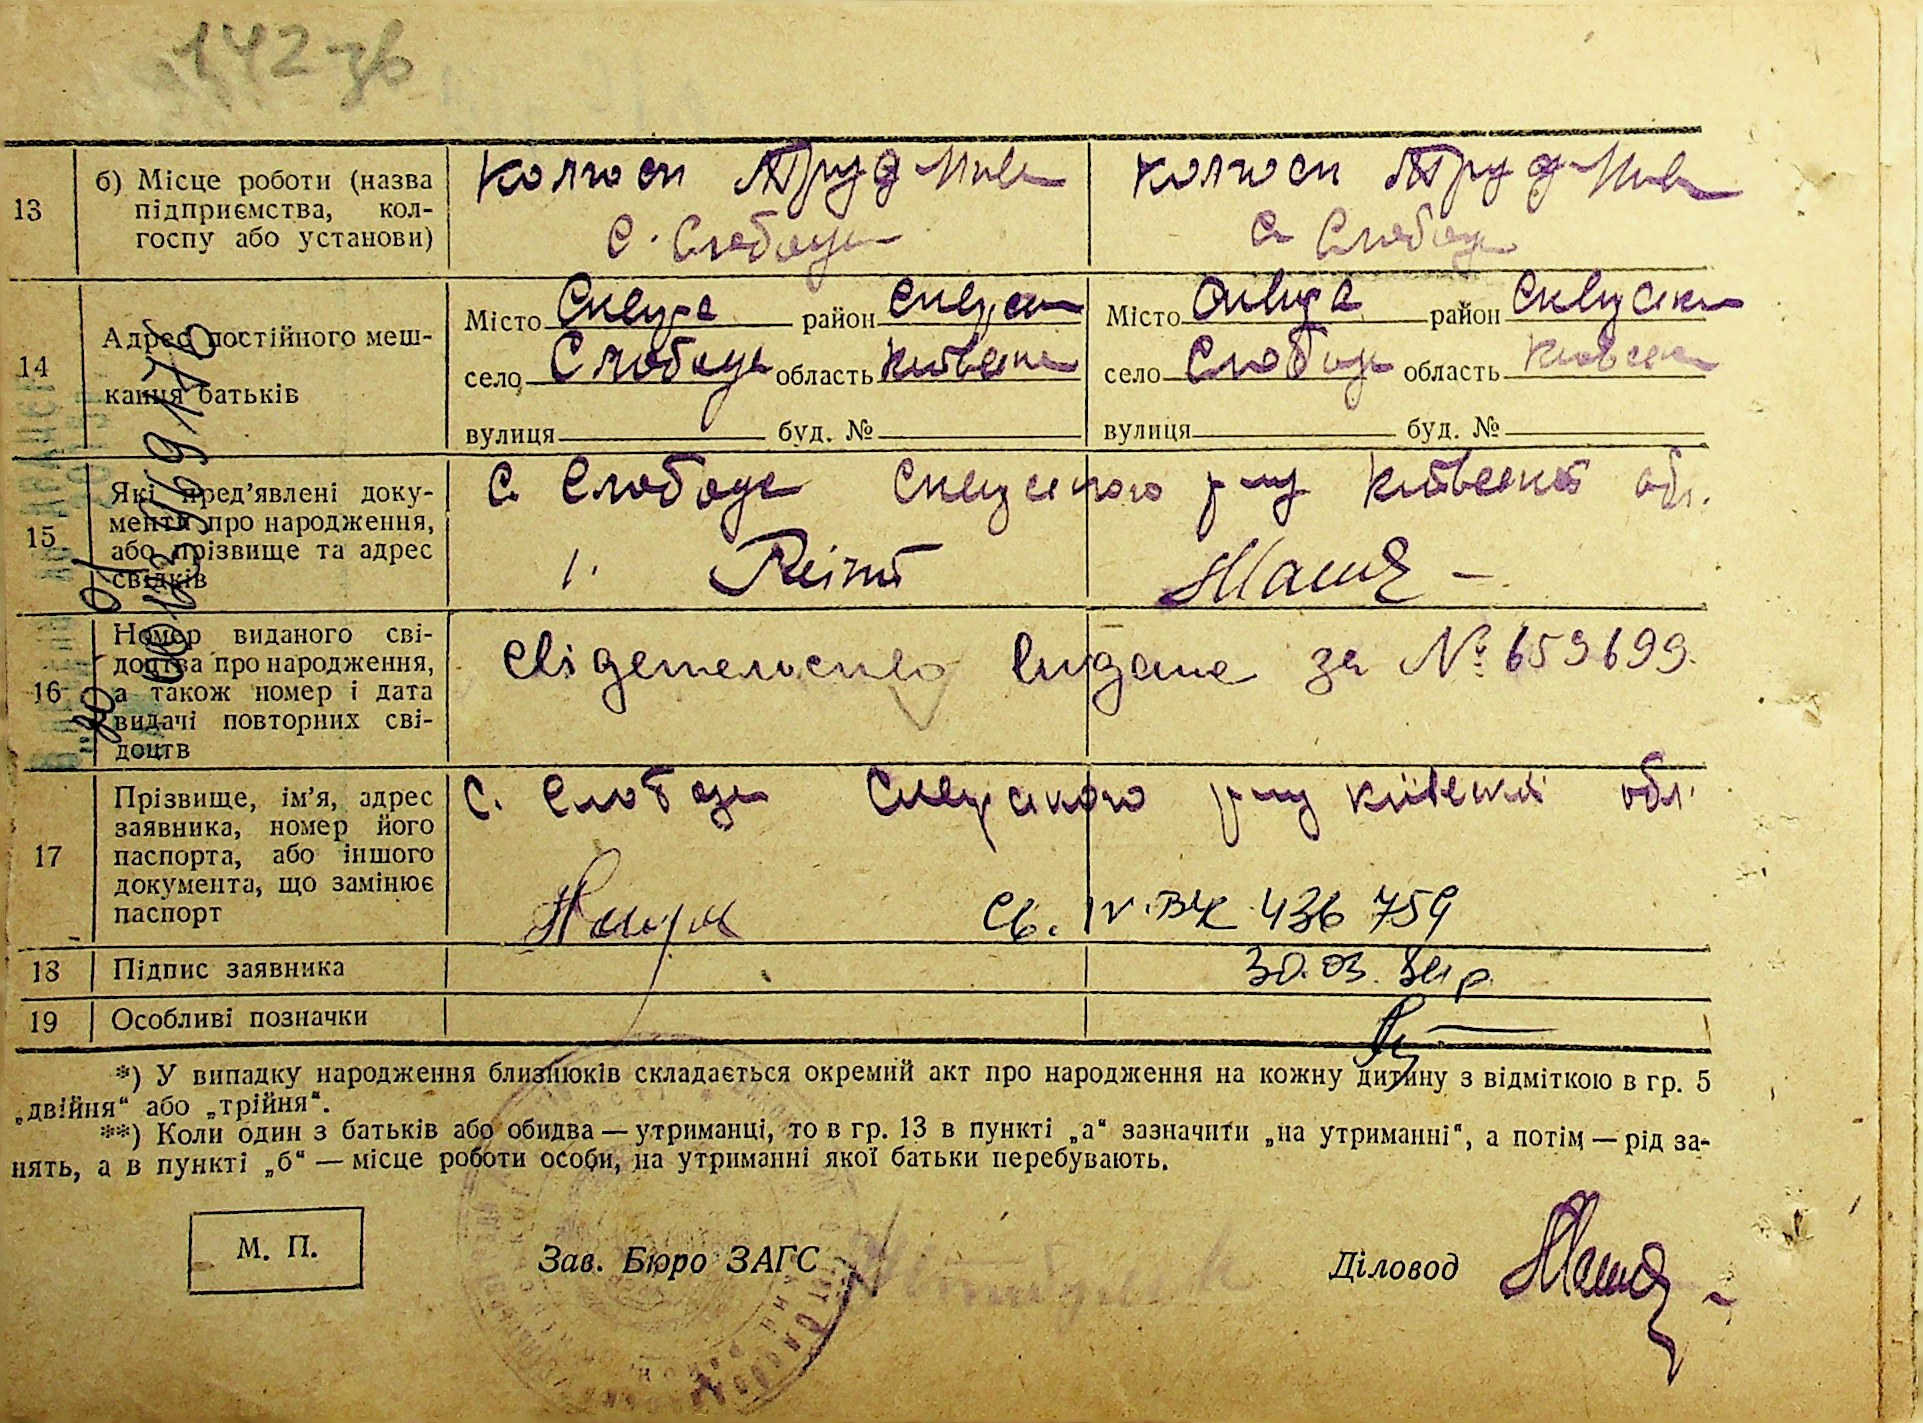 142 зв
13 б) Місце роботи (назва підприємства, кол-
госпу або установи)
колгосп Труд
колгосп Труд
с. Слобода
с. Слобода
14 Адрес постійного меш-
кання батьків
Місто Сквира район Сквирськ
Місто Сквира район Сквирськ
село Слобода область Київська
село Слобода область Київська
вулиця буд. №
вулиця буд. №
15 Які пред'явлені доку-
менти про народження,
або прізвище та адрес
свідків
с. Слобода Сквирського р-ну Київської обл.
1.
16 Номер виданого сві-
доцтва про народження,
а також номер і дата
видачі повторних сві-
доцтв
свідетельство видане за № 659699.
17 Прізвище, ім'я, адрес
заявника, номер його
паспорта, або іншого
документа, що замінює
паспорт
с. Слобода Сквирського р-ну Київської обл.
Св. IV-БК 436759
18 Підпис заявника
30.03.
19 Особливі позначки
*) У випадку народження близнюків складається окремий акт про народження на кожну дитину з відміткою в гр. 5
„двійня“ або „трійня“.
**) Коли один з батьків або обидва — утриманці, то в гр. 13 в пункті „а“ зазначити „на утриманні“, а потім — рід за-
нять, а в пункті „б“ — місце роботи особи, на утриманні якої батьки перебувають.
М. П.
Зав. Бюро ЗАГС
Діловод